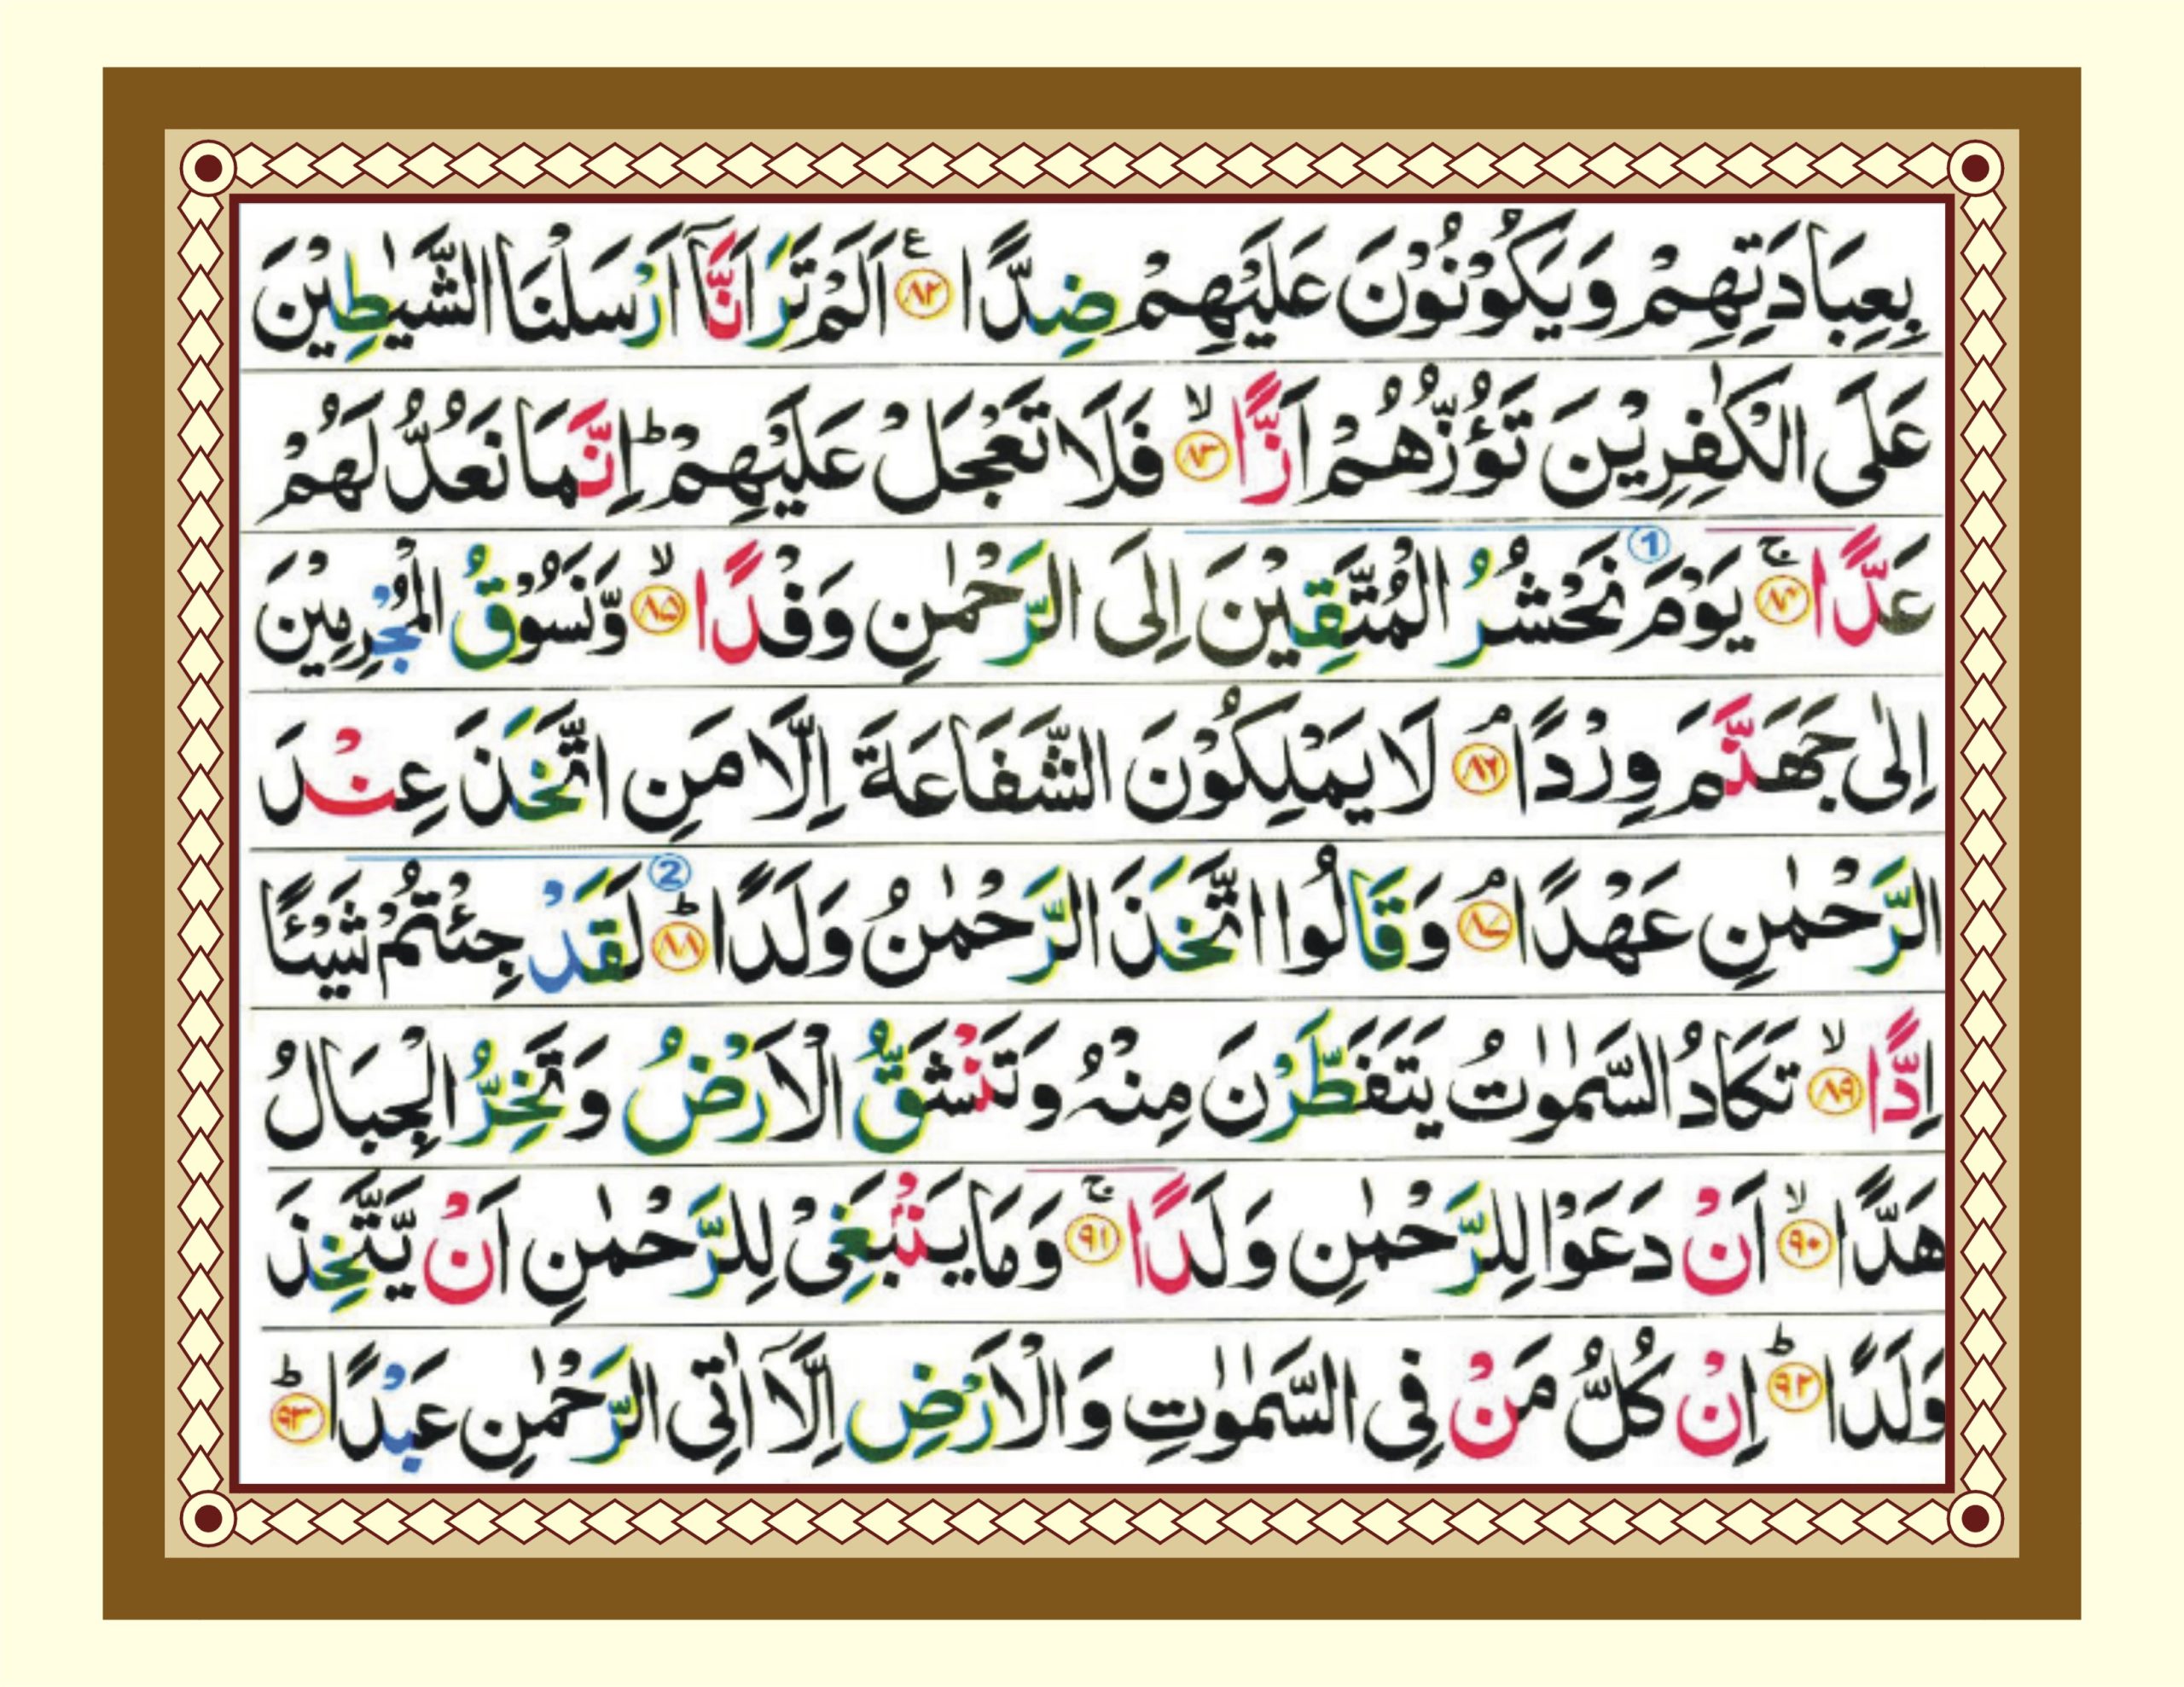 بِعِبَادَتِهِمْ وَيَكُوْنُوْنَ عَلَيْهِمْ ضِدًّا ۝۸۲ ع اَلَمْ تَرَ اَنَّآ اَرْسَلْنَا الشَّيٰطِيْنَ
عَلَى الْكٰفِرِيْنَ تَؤُزُّهُمْ اَزًّا ۙ۝۸۳ فَلَا تَعْجَلْ عَلَيْهِمْ ؕ اِنَّمَا نَعُدُّ لَهُمْ
عَدًّا ۚ۝۸۴ يَوْمَ ① نَحْشُرُ الْمُتَّقِيْنَ اِلَى الرَّحْمٰنِ وَفْدًا ۙ۝۸۵ وَّنَسُوْقُ الْمُجْرِمِيْنَ
اِلٰى جَهَنَّمَ وِرْدًا ۘ۝۸۶ لَا يَمْلِكُوْنَ الشَّفَاعَةَ اِلَّا مَنِ اتَّخَذَ عِنْدَ
الرَّحْمٰنِ عَهْدًا ۘ۝۸۷ وَقَالُوا اتَّخَذَ الرَّحْمٰنُ وَلَدًا ؕ۝۸۸ ② لَقَدْ جِئْتُمْ شَيْـًٔا
اِدًّا ۙ۝۸۹ تَكَادُ السَّمٰوٰتُ يَتَفَطَّرْنَ مِنْهُ وَتَنْشَقُّ الْاَرْضُ وَتَخِرُّ الْجِبَالُ
هَدًّا ۙ۝۹۰ اَنْ دَعَوْا لِلرَّحْمٰنِ وَلَدًا ۚ۝۹۱ وَمَا يَنْۢبَغِيْ لِلرَّحْمٰنِ اَنْ يَّتَّخِذَ
وَلَدًا ؕ۝۹۲ اِنْ كُلُّ مَنْ فِى السَّمٰوٰتِ وَالْاَرْضِ اِلَّآ اٰتِى الرَّحْمٰنِ عَبْدًا ؕ۝۹۳